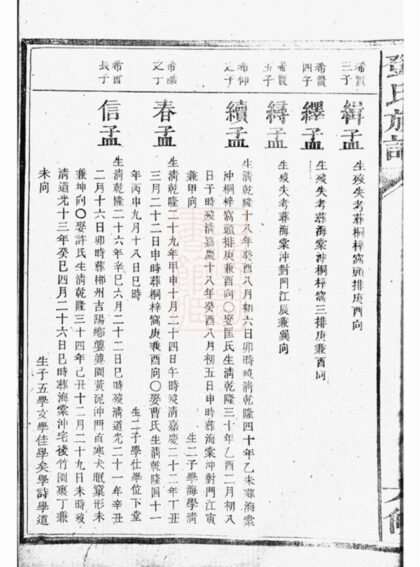 氏族譜
希賢三子
緝孟
生歿失考葬桐梓窩頭排庚酉向
希賢四子
繹孟
生歿失考葬海棠沖桐梓窩三排庚兼酉向
希賢五子
縟孟
生歿失考葬海棠沖對門江辰兼巽向
希仰之子
續孟
生清乾隆十八年癸酉八月初六日卯時歿清乾隆四十年乙未葬海棠
沖桐梓窩頭排庚兼酉向〇娶匡氏生清乾隆三十年乙酉二月初八
日子時歿清嘉慶十八年癸酉八月初五日申時葬海棠沖對門江寅
兼甲向
生二子學海學清
之子
春孟
生清乾隆二十九年甲申十月二十四日午時歿清嘉慶二十二年丁丑
三月二十二日申時葬桐梓窩庚兼酉向〇娶曹氏生清乾隆四十一
年丙申九月十八日巳時
生二子學仕學位下堂
長子
信孟
生清乾隆二十六年辛巳六月二十二日巳時歿清道光二十一年辛丑
二月十六日卯時葬郴州吉陽鄉
園黃泥沖門首寒犬眠窠形未
兼坤向〇娶許氏生清乾隆三十四年己丑十二月二十九日未時歿
清道光十三年癸巳四月二十六日巳時葬海棠沖宅後竹園裏丁兼
未向
生子五學文學佳學矣學詩學道